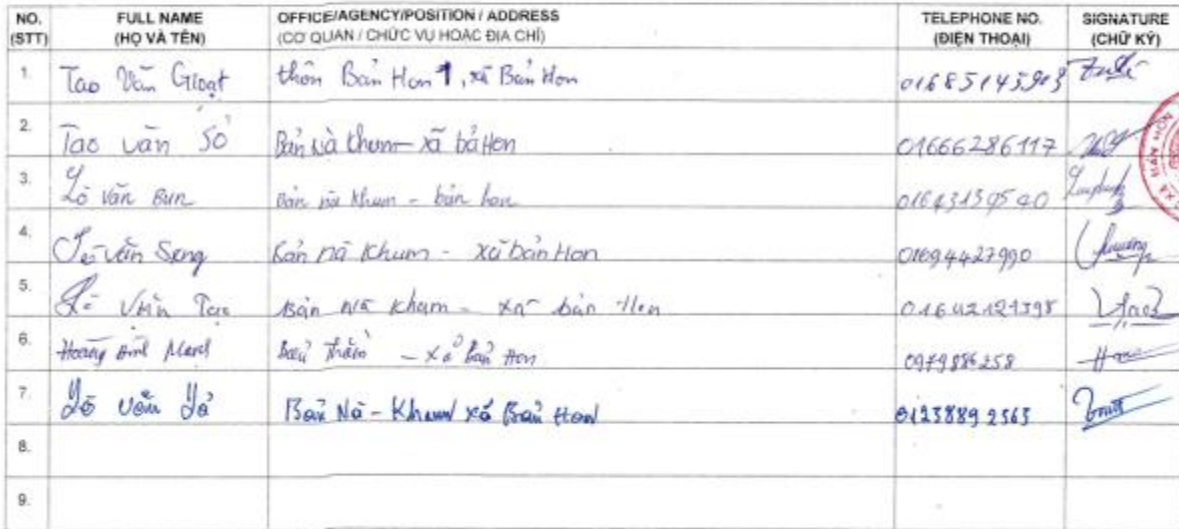 NO. (STT) FULL NAME (HỌ VÀ TÊN) OFFICE/AGENCY/POSITION / ADDRESS (CƠ QUAN / CHỨC VỤ HOẶC ĐỊA CHỈ) TELEPHONE NO. (ĐIỆN THOẠI) SIGNATURE (CHỮ KÝ)
1. Tao Văn Gioạt thôn Bản Hon 1, xã Bản Hon 01685145903
2. Tao văn Sô Bản nà khum - xã bả Hon 01666286117
3. Lò văn Bun bản nà khum - bản hon 01643139540
4. văn Seng bản nà khum - xã bản Hon 01694427990
5. Lò Văn Tao Bản nà khum - xã bản Hon 01642121398
6. Hoàng - xã bản Hon 0979886258
7. Lò văn Bản Nà - Khum xã Bản Hon 01238892563
8.
9.